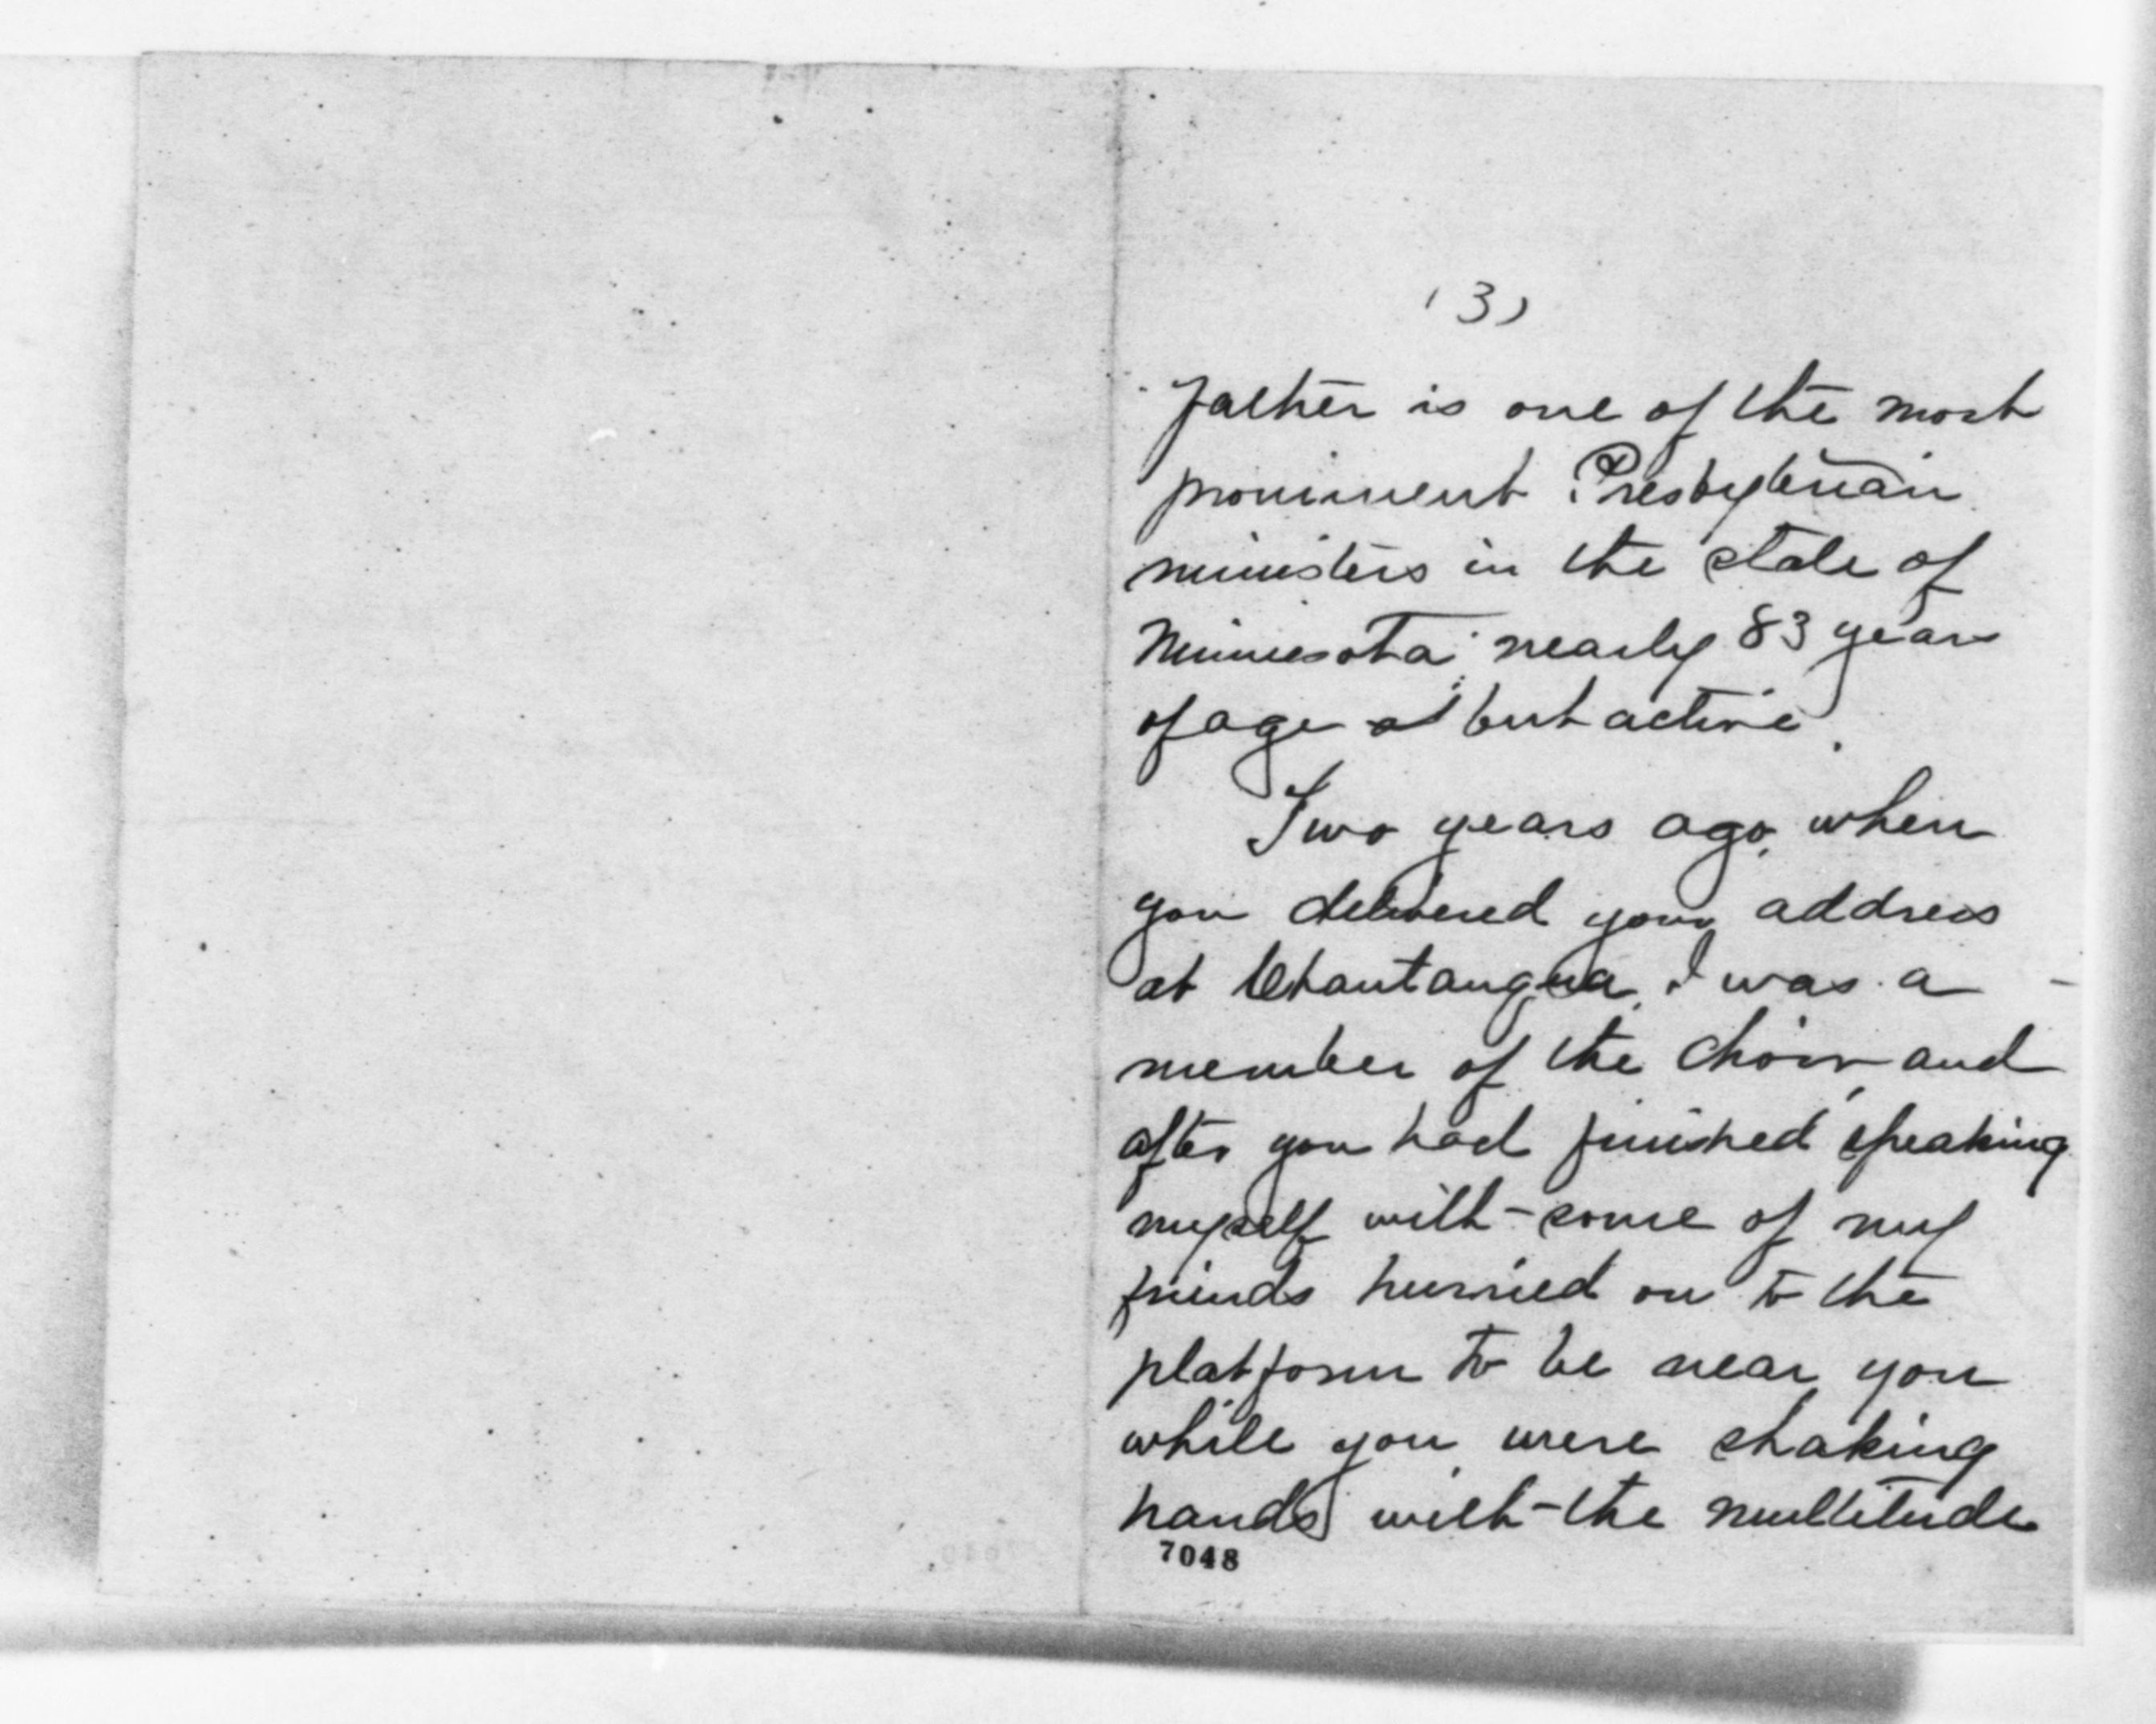 (3)
father is one of the most
prominent Presbyterian
ministers in the state of
Minnesota; nearly 83 years
of age but active.
Two years ago, when
you delivered your address
at Chautauqua, I was a
member of the choir, and
after you had finished speaking
myself with some of my
friends hurried on to the
platform to be near you
while you were shaking
hands with the multitude
7048